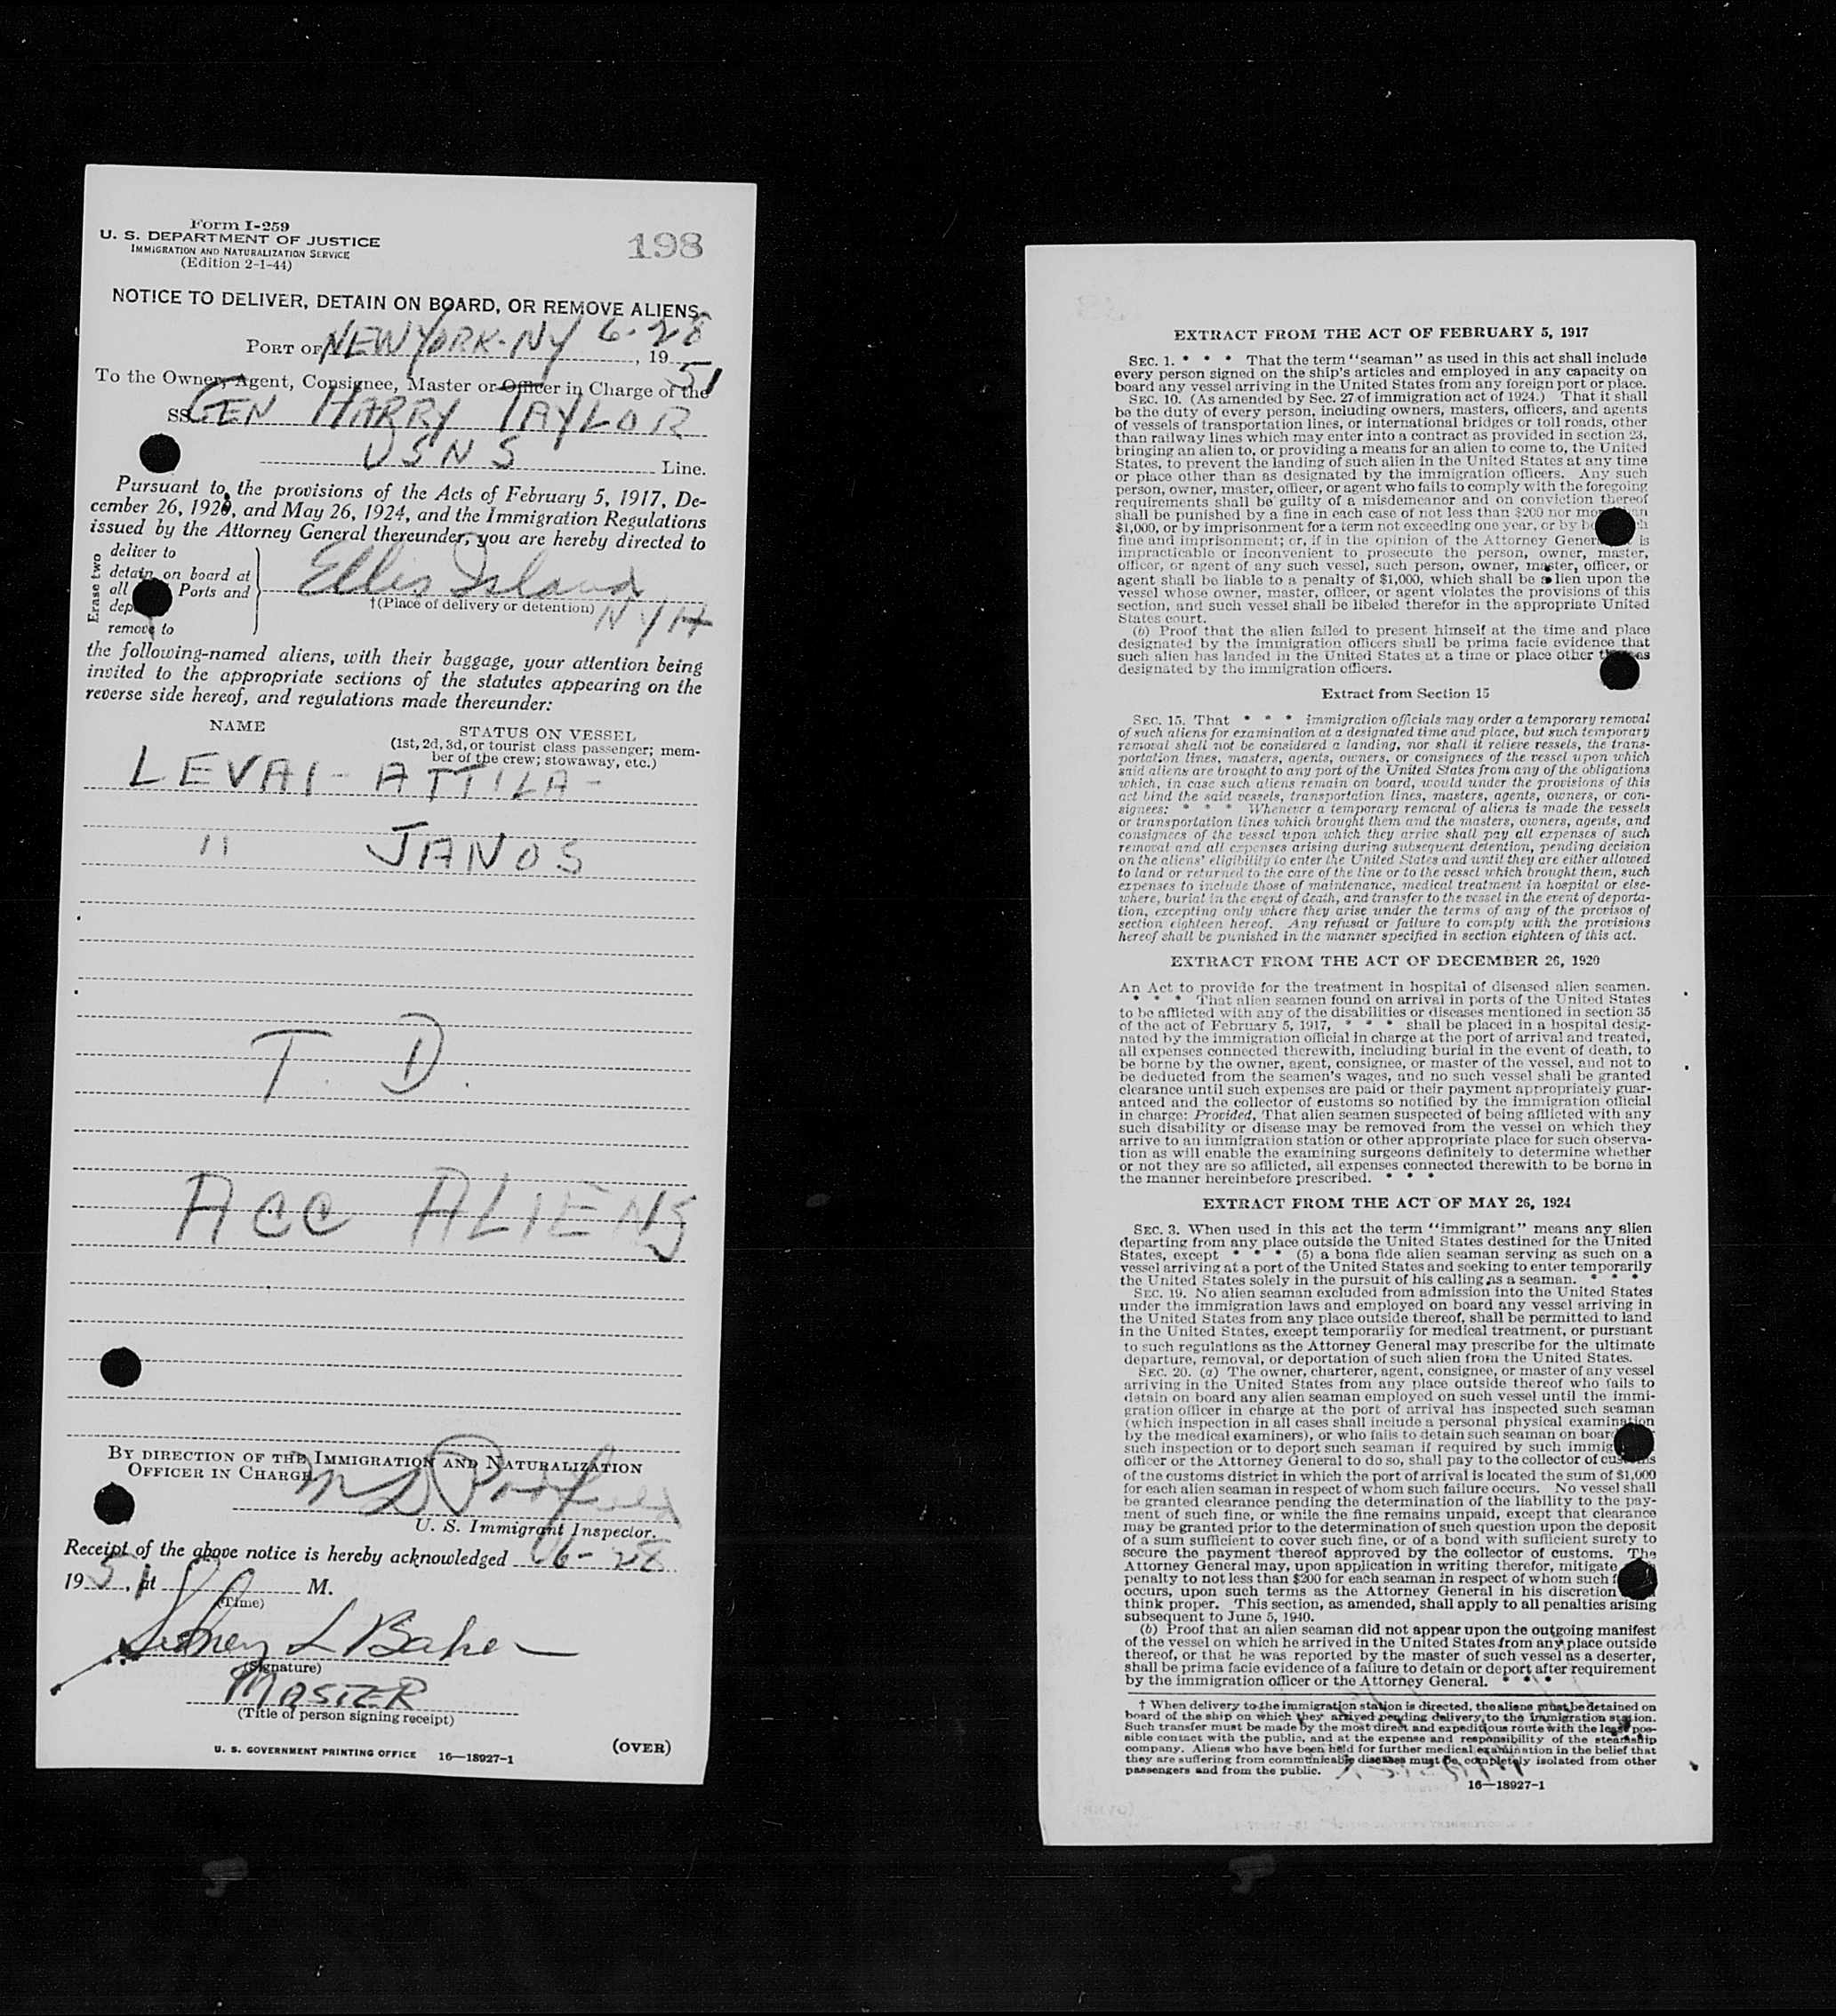 Form I-259
U. S. DEPARTMENT OF JUSTICE
IMMIGRATION AND NATURALIZATION SERVICE
(Edition 2-1-44)
198
NOTICE TO DELIVER, DETAIN ON BOARD, OR REMOVE ALIENS
PORT OF NEW YORK-NY 6-28, 1951
To the Owner, Agent, Consignee, Master or Officer in Charge of the
SS GEN HARRY TAYLOR
USNS Line.
Pursuant to the provisions of the Acts of February 5, 1917, De-
cember 26, 1920, and May 26, 1924, and the Immigration Regulations
issued by the Attorney General thereunder, you are hereby directed to
Erase two
deliver to
detain on board at
all Ports and
dep
remove to
Ellis Island
†(Place of delivery or detention) NYH
the following-named aliens, with their baggage, your attention being
invited to the appropriate sections of the statutes appearing on the
reverse side hereof, and regulations made thereunder:
NAME
STATUS ON VESSEL
(1st, 2d, 3d, or tourist class passenger; mem-
ber of the crew; stowaway, etc.)
LEVAI - ATTILA -
" JANOS
T. D.
ACC ALIENS
BY DIRECTION OF THE IMMIGRATION AND NATURALIZATION
OFFICER IN CHARGE
U. S. Immigrant Inspector.
Receipt of the above notice is hereby acknowledged 6-28
1951, at M.
(Time)
Sidney L Baker
(Signature)
MASTER
(Title of person signing receipt)
U. S. GOVERNMENT PRINTING OFFICE 16—18927-1
(OVER)
EXTRACT FROM THE ACT OF FEBRUARY 5, 1917
SEC. 1. * * * That the term "seaman" as used in this act shall include
every person signed on the ship's articles and employed in any capacity on
board any vessel arriving in the United States from any foreign port or place.
SEC. 10. (As amended by Sec. 27 of immigration act of 1924.) That it shall
be the duty of every person, including owners, masters, officers, and agents
of vessels of transportation lines, or international bridges or toll roads, other
than railway lines which may enter into a contract as provided in section 23,
bringing an alien to, or providing a means for an alien to come to, the United
States, to prevent the landing of such alien in the United States at any time
or place other than as designated by the immigration officers. Any such
person, owner, master, officer, or agent who fails to comply with the foregoing
requirements shall be guilty of a misdemeanor and on conviction thereof
shall be punished by a fine in each case of not less than $200 nor more than
$1,000, or by imprisonment for a term not exceeding one year, or by
fine and imprisonment; or, if in the opinion of the Attorney General is
impracticable or inconvenient to prosecute the person, owner, master,
officer, or agent of any such vessel, such person, owner, master, officer, or
agent shall be liable to a penalty of $1,000, which shall be a lien upon the
vessel whose owner, master, officer, or agent violates the provisions of this
section, and such vessel shall be libeled therefor in the appropriate United
States court.
(b) Proof that the alien failed to present himself at the time and place
designated by the immigration officers shall be prima facie evidence that
such alien has landed in the United States at a time or place other as
designated by the immigration officers.
Extract from Section 15
SEC. 15. That * * * immigration officials may order a temporary removal
of such aliens for examination at a designated time and place, but such temporary
removal shall not be considered a landing, nor shall it relieve vessels, the trans-
portation lines, masters, agents, owners, or consignees of the vessel upon which
said aliens are brought to any port of the United States from any of the obligations
which, in case such aliens remain on board, would under the provisions of this
act bind the said vessels, transportation lines, masters, agents, owners, or con-
signees: * * * Whenever a temporary removal of aliens is made the vessels
or transportation lines which brought them and the masters, owners, agents, and
consignees of the vessel upon which they arrive shall pay all expenses of such
removal and all expenses arising during subsequent detention, pending decision
on the aliens' eligibility to enter the United States and until they are either allowed
to land or returned to the care of the line or to the vessel which brought them, such
expenses to include those of maintenance, medical treatment in hospital or else-
where, burial in the event of death, and transfer to the vessel in the event of deporta-
tion, excepting only where they arise under the terms of any of the provisos of
section eighteen hereof. Any refusal or failure to comply with the provisions
hereof shall be punished in the manner specified in section eighteen of this act.
EXTRACT FROM THE ACT OF DECEMBER 26, 1920
An Act to provide for the treatment in hospital of diseased alien seamen.
* * * That alien seamen found on arrival in ports of the United States
to be afflicted with any of the disabilities or diseases mentioned in section 35
of the act of February 5, 1917, * * * shall be placed in a hospital desig-
nated by the immigration official in charge at the port of arrival and treated,
all expenses connected therewith, including burial in the event of death, to
be borne by the owner, agent, consignee, or master of the vessel, and not to
be deducted from the seamen's wages, and no such vessel shall be granted
clearance until such expenses are paid or their payment appropriately guar-
anteed and the collector of customs so notified by the immigration official
in charge: Provided, That alien seamen suspected of being afflicted with any
such disability or disease may be removed from the vessel on which they
arrive to an immigration station or other appropriate place for such observa-
tion as will enable the examining surgeons definitely to determine whether
or not they are so afflicted, all expenses connected therewith to be borne in
the manner hereinbefore prescribed. * * *
EXTRACT FROM THE ACT OF MAY 26, 1924
SEC. 3. When used in this act the term "immigrant" means any alien
departing from any place outside the United States destined for the United
States, except * * * (5) a bona fide alien seaman serving as such on a
vessel arriving at a port of the United States and seeking to enter temporarily
the United States solely in the pursuit of his calling as a seaman. * * *
SEC. 19. No alien seaman excluded from admission into the United States
under the immigration laws and employed on board any vessel arriving in
the United States from any place outside thereof, shall be permitted to land
in the United States, except temporarily for medical treatment, or pursuant
to such regulations as the Attorney General may prescribe for the ultimate
departure, removal, or deportation of such alien from the United States.
SEC. 20. (a) The owner, charterer, agent, consignee, or master of any vessel
arriving in the United States from any place outside thereof who fails to
detain on board any alien seaman employed on such vessel until the immi-
gration officer in charge at the port of arrival has inspected such seaman
(which inspection in all cases shall include a personal physical examination
by the medical examiners), or who fails to detain such seaman on board
such inspection or to deport such seaman if required by such immig
officer or the Attorney General to do so, shall pay to the collector of customs
of the customs district in which the port of arrival is located the sum of $1,000
for each alien seaman in respect of whom such failure occurs. No vessel shall
be granted clearance pending the determination of the liability to the pay-
ment of such fine, or while the fine remains unpaid, except that clearance
may be granted prior to the determination of such question upon the deposit
of a sum sufficient to cover such fine, or of a bond with sufficient surety to
secure the payment thereof approved by the collector of customs. The
Attorney General may, upon application in writing therefor, mitigate
penalty to not less than $200 for each seaman in respect of whom such f
occurs, upon such terms as the Attorney General in his discretion
think proper. This section, as amended, shall apply to all penalties arising
subsequent to June 5, 1940.
(b) Proof that an alien seaman did not appear upon the outgoing manifest
of the vessel on which he arrived in the United States from any place outside
thereof, or that he was reported by the master of such vessel as a deserter,
shall be prima facie evidence of a failure to detain or deport after requirement
by the immigration officer or the Attorney General. * * *
† When delivery to the immigration station is directed, the aliens must be detained on
board of the ship on which they arrived pending delivery to the immigration station.
Such transfer must be made by the most direct and expeditious route with the least pos-
sible contact with the public, and at the expense and responsibility of the steamship
company. Aliens who have been held for further medical examination in the belief that
they are suffering from communicable diseases must be completely isolated from other
passengers and from the public.
16—18927-1